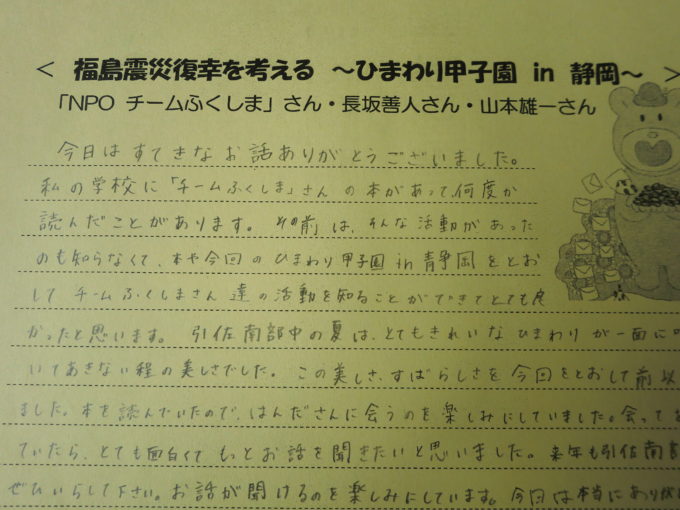 ＜ 福島震災復幸を考える ～ひまわり甲子園 in 静岡～ ＞
「NPO チームふくしま」さん・長坂善人さん・山本雄一さん
今日はすてきなお話ありがとうございました。
私の学校に「チームふくしま」さんの本があって何度か
読んだことがあります。その前は、そんな活動があった
のも知らなくて、本や今回のひまわり甲子園in静岡をとお
して チームふくしまさん達の活動を知ることができてとても良
かったと思います。 引佐南部中の夏は、とてもきれいなひまわりが一面に
いてあきない程の美しさでした。この美しさ、すばらしさを今回をとおして前以
ました。本を読んでいたので、はんださんに会うのを楽しみにしていました。会ってお
ていたら、とても面白くてもっとお話を聞きたいと思いました。来年も引佐南部
ぜひいらして下さい。お話が聞けるのを楽しみにしています。今日は本当にありが